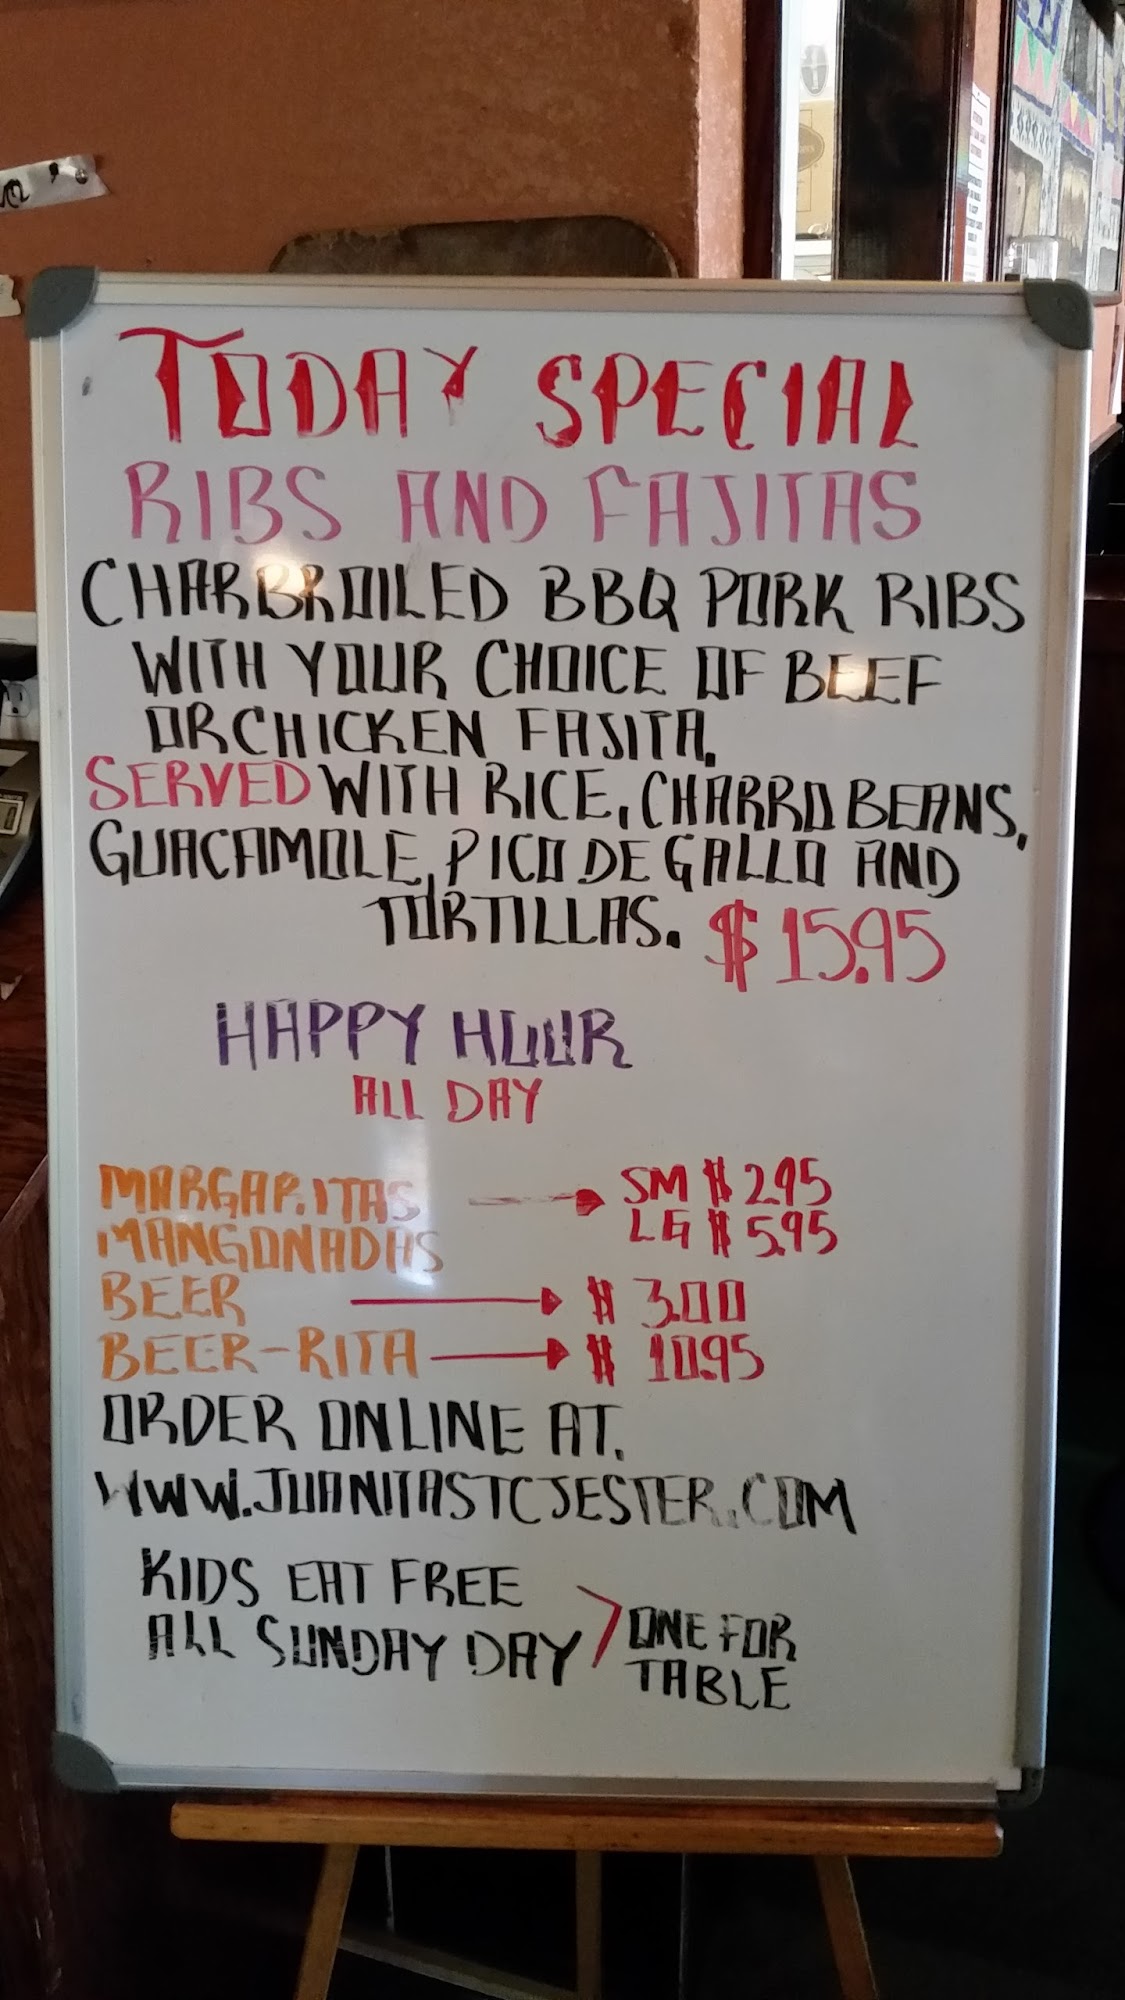 TODAY SPECIAL
RIBS AND FAJITAS
CHARBROILED BBQ PORK RIBS
WITH YOUR CHOICE OF BEEF
OR CHICKEN FAJITA.
SERVED WITH RICE, CHARRO BEANS,
GUACAMOLE, PICO DE GALLO AND
TORTILLAS. $15.95
HAPPY HOUR
ALL DAY
MARGARITAS SM $2.95
MANGONADAS LG $5.95
BEER $3.00
BEER-RITA $10.95
ORDER ONLINE AT.
WWW.JUANITASTCJESTER.COM
KIDS EAT FREE
ALL SUNDAY DAY
ONE FOR
TABLE